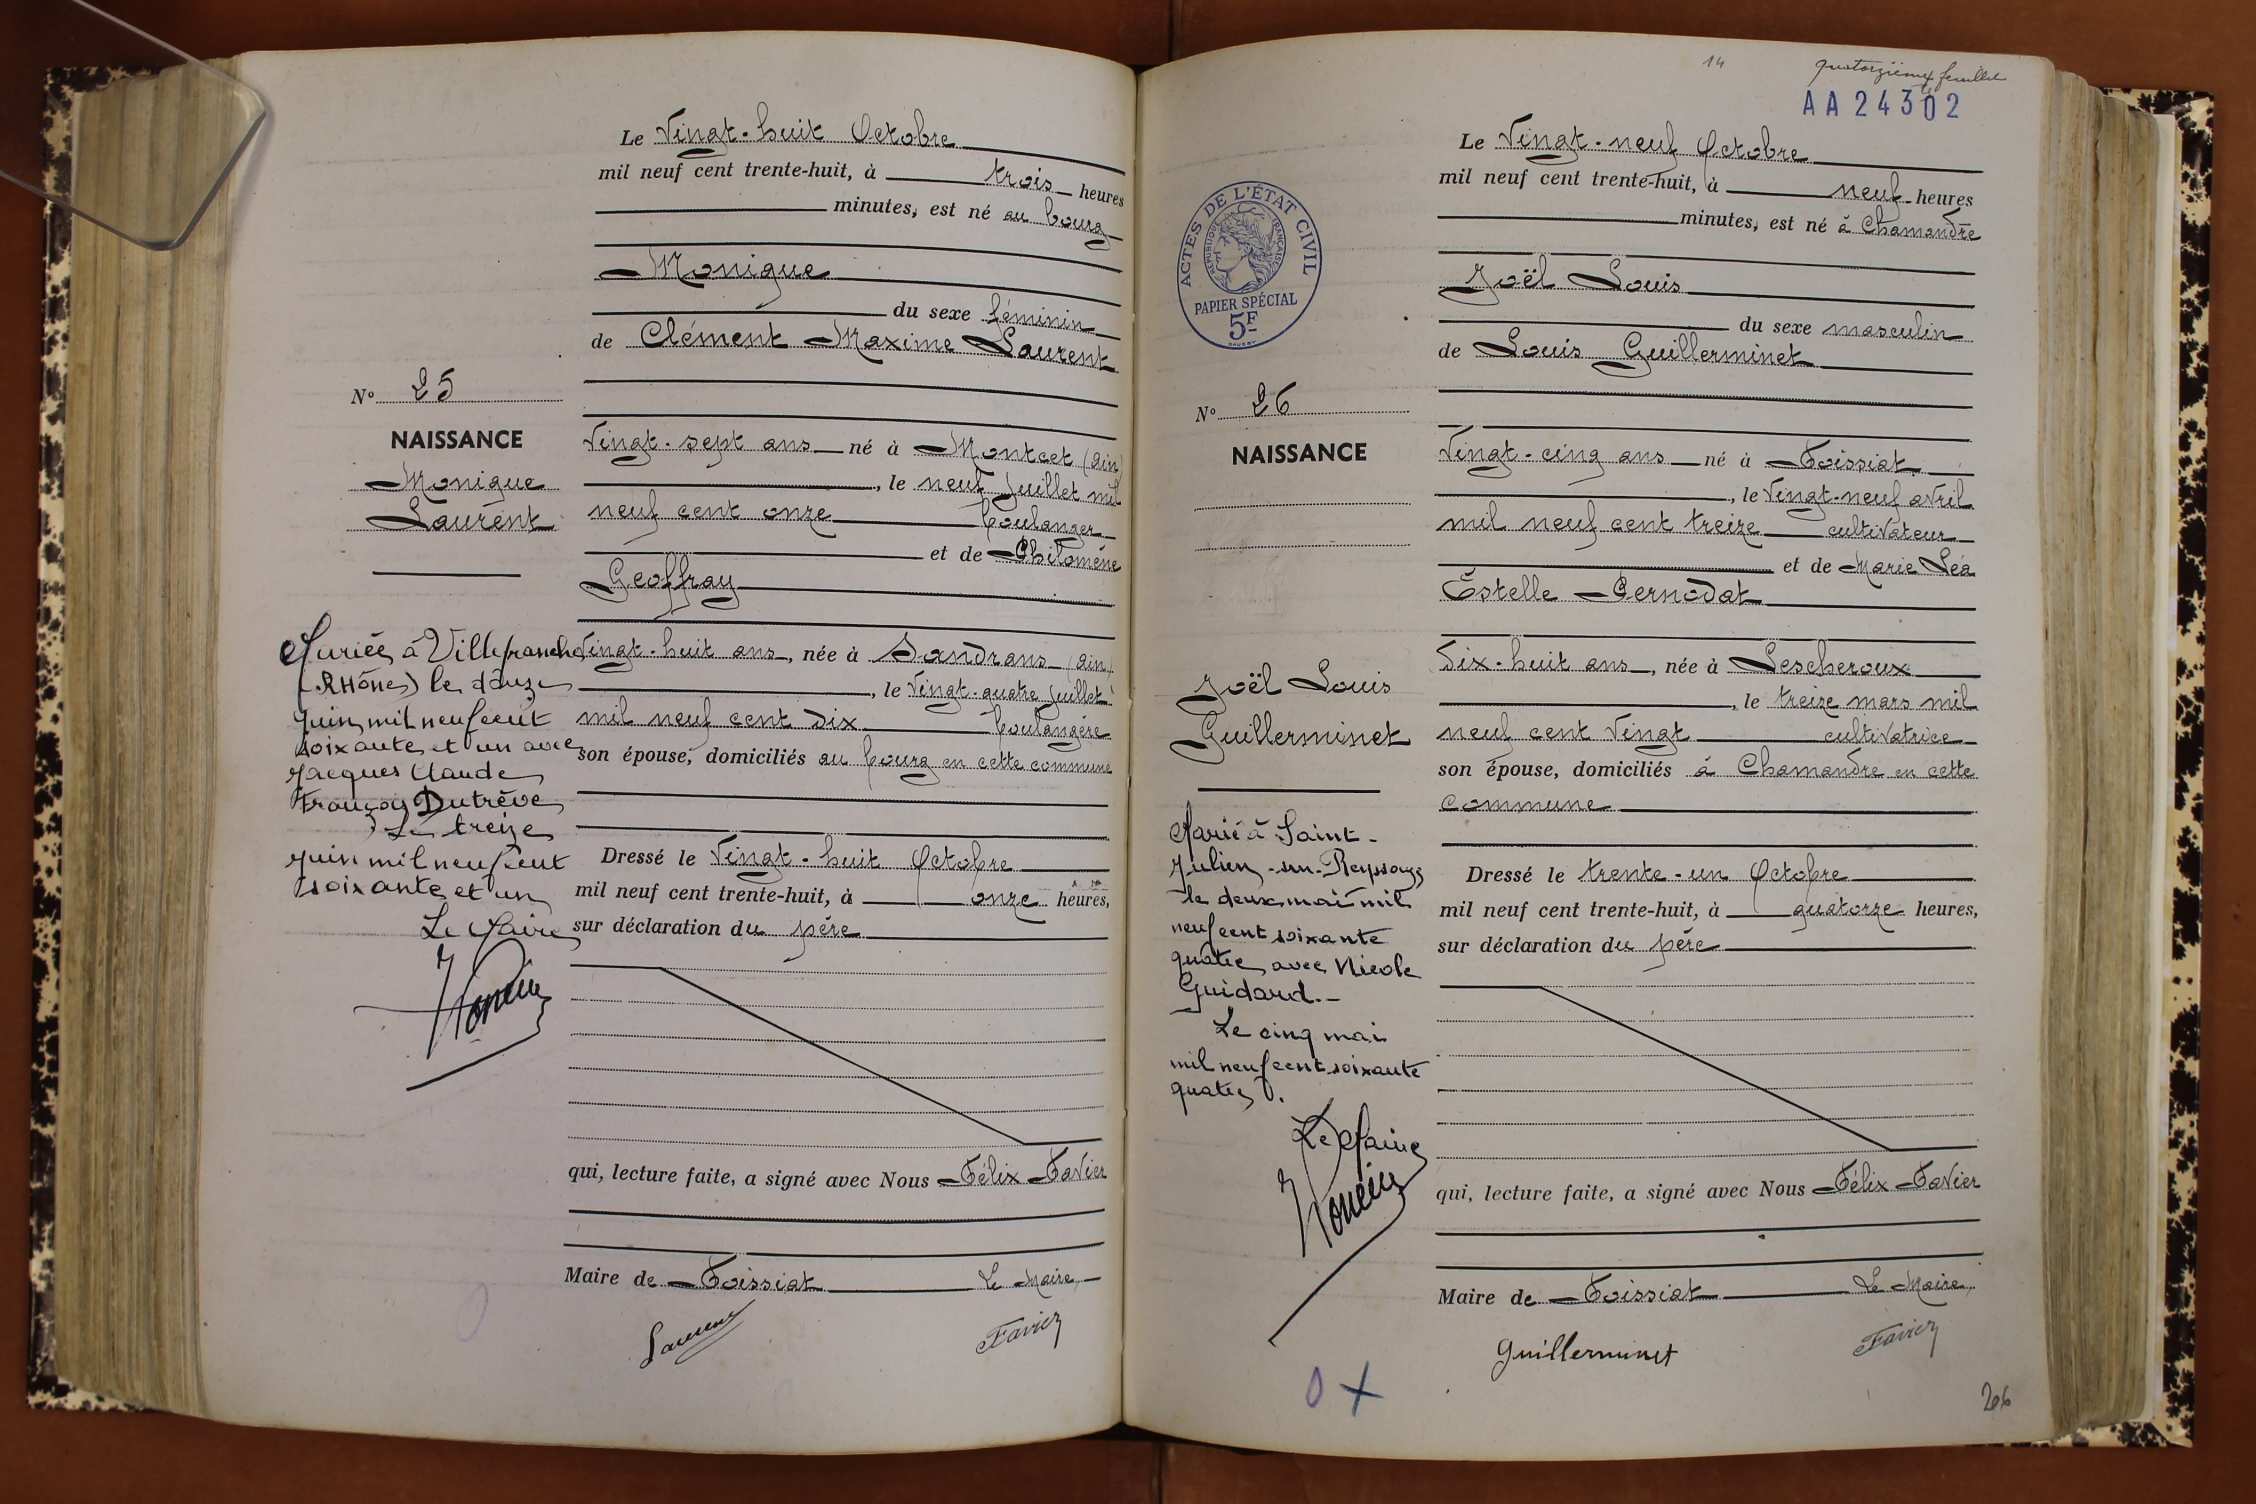 Le Vingt-huit Octobre
mil neuf cent trente-huit, à trois heures
minutes, est né au bourg
Monique
du sexe féminin
de Clément Maxime Laurent
N° 25
NAISSANCE
Monique
Laurent
Vingt-sept ans né à Montcet (Ain)
, le neuf Juillet mil
neuf cent onze boulanger
et de Philomène
Geoffray
Vingt-huit ans, née à Sandrans (Ain)
, le Vingt-quatre Juillet
mil neuf cent dix boulangère
son épouse, domiciliés au bourg en cette commune
Mariée à Villefranche
(Rhône) le douze
juin mil neuf cent
soixante et un avec
Jacques Claude
François Dutrève
Le treize
juin mil neuf cent
soixante et un
Le Maire
Dressé le Vingt-huit Octobre
mil neuf cent trente-huit, à onze heures,
sur déclaration du père
qui, lecture faite, a signé avec Nous Félix Favier
Maire de Foissiat Le Maire,
Laurent
Favier
14
quatorzième feuillet
AA24302
Le Vingt-neuf Octobre
mil neuf cent trente-huit, à neuf heures
minutes, est né à Chamandre
ACTES DE L'ÉTAT CIVIL
RÉPUBLIQUE FRANÇAISE
PAPIER SPÉCIAL
5F
Joël Louis
du sexe masculin
de Louis Guillerminet
N° 26
NAISSANCE
Vingt-cinq ans né à Foissiat
, le Vingt-neuf avril
mil neuf cent treize cultivateur
et de Marie Léa
Estelle Pernodat
dix-huit ans, née à Lescheroux
, le treize mars mil
neuf cent Vingt cultivatrice
son épouse, domiciliés à Chamandre en cette
commune
Joël Louis
Guillerminet
Marié à Saint-
Julien-sur-Reyssouze
le deux mai mil
neuf cent soixante
quatre avec Nicole
Guidard.-
Le cinq mai
mil neuf cent soixante
quatre.
Le Maire
Dressé le trente-un Octobre
mil neuf cent trente-huit, à quatorze heures,
sur déclaration du père
qui, lecture faite, a signé avec Nous Félix Favier
Maire de Foissiat Le Maire,
Guillerminet
Favier
206